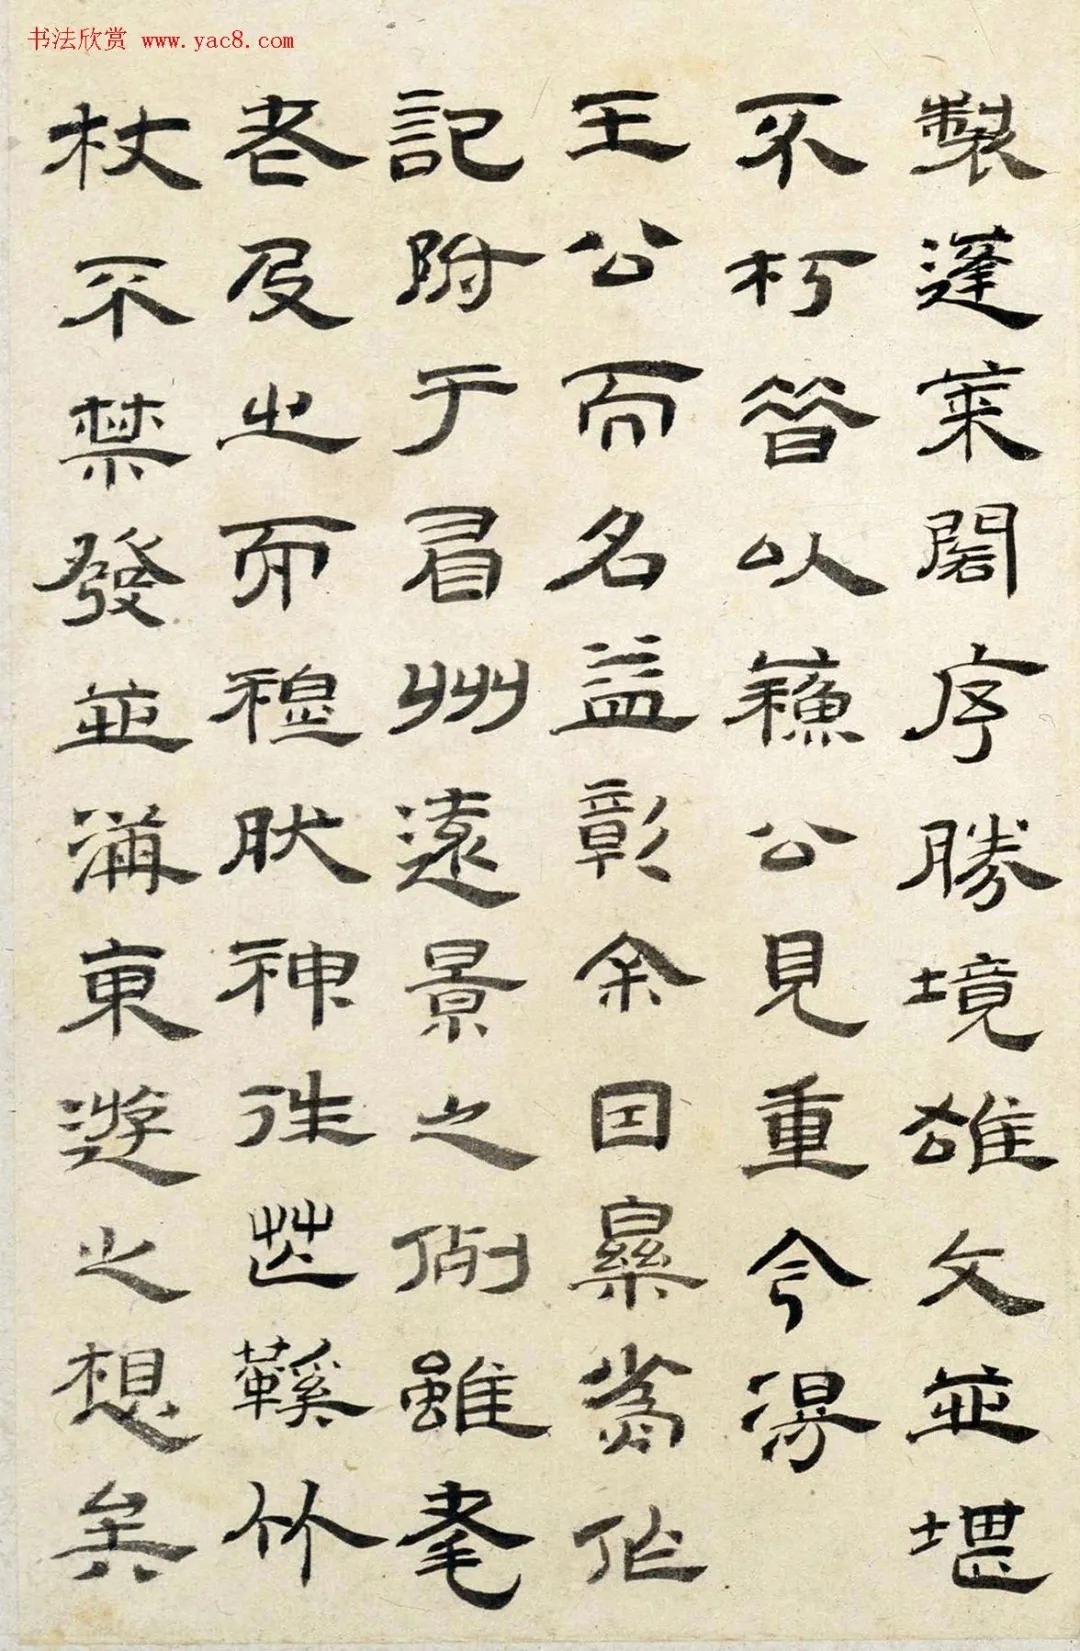 书法欣赏 www.yac8.com
製蓬萊閣序勝境雄文並堪
不朽昔以蘇公見重今得
王公而名益彰余因樂爲作
記附于眉州遠景之例雖耄
老及之而穆肰神往芒鞵竹
杖不禁發並海東遊之想矣